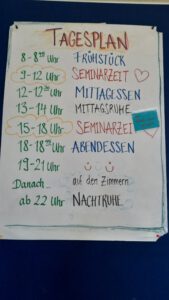 TAGESPLAN
8-8³⁰ Uhr FRÜHSTÜCK
9-12 Uhr SEMINARZEIT
12-12³⁰ Uhr MITTAGESSEN
13-14 Uhr MITTAGSRUHE
15-18 Uhr SEMINARZEIT
18-18³⁰ Uhr ABENDESSEN
19-21 Uhr
Danach... auf den Zimmern
ab 22 Uhr NACHTRUHE